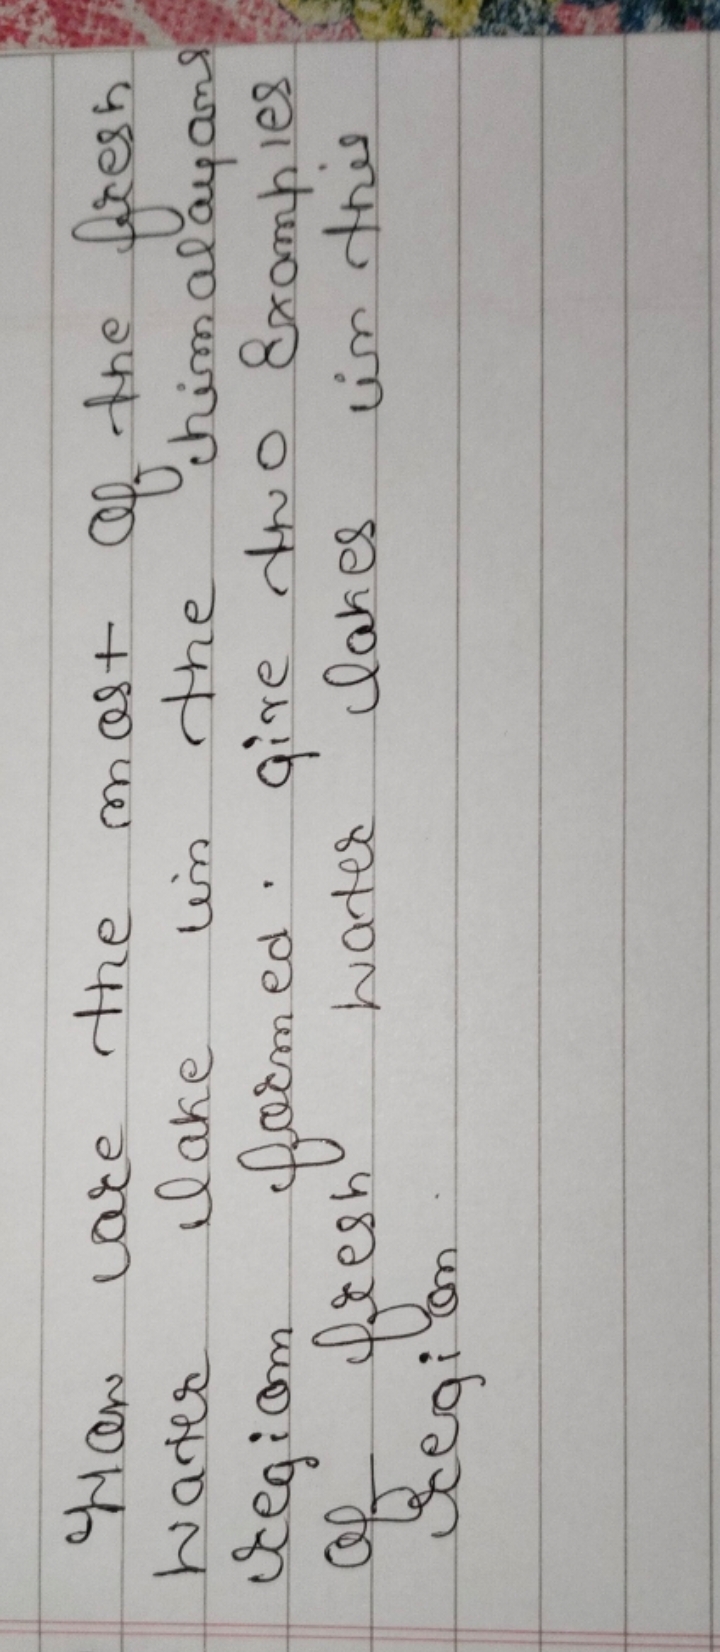 How are the most of the fresh
water lake in the himalayans
region formed. give two Examples
of fresh water lakes in this
region.